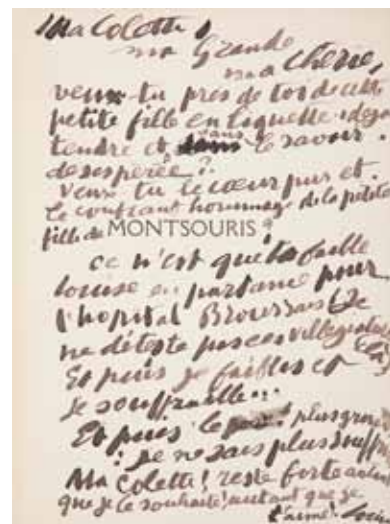 Ma Colette,
ma Grande
ma chérie,
veux-tu près de toi de cette
petite fille en liquette déjà
tendre et sans le savoir
désespérée ?
Veux tu le cœur pur et
le confiant hommage de la petite
fille de MONTSOURIS ?
ce n'est que ta faible
Louise en partance pour
l'hôpital Broussais (Je
ne déteste pas ces villégiatures
Et puis je faiblis et
je
Et puis le plus
je ne sais plus
Ma Colette ! reste forte autant
que je le souhaite ! autant que je
t'aime !